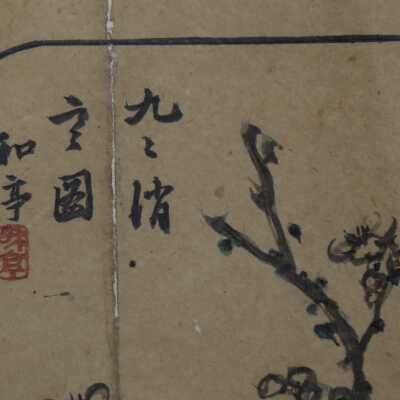 九〻消
寒圖
和亭